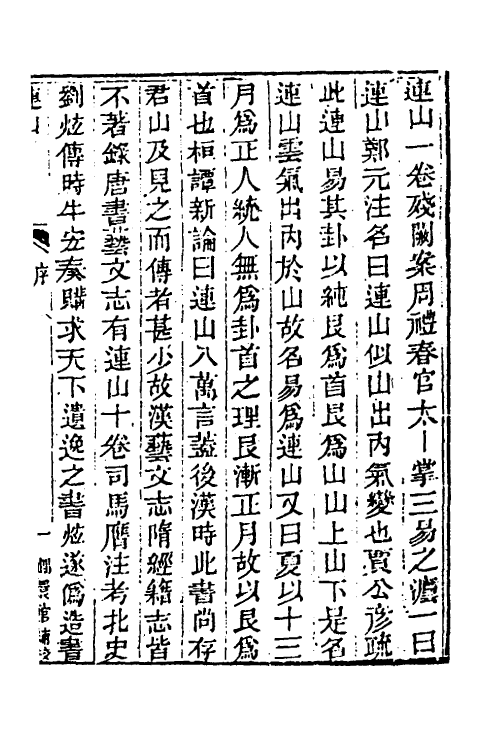 連山一卷殘闕案周禮春官太卜掌三易之灋一曰
連山鄭元注名曰連山似山出內氣變也賈公彥疏
此連山易其卦以純艮爲首艮爲山山上山下是名
連山雲氣出內於山故名易爲連山又曰夏以十三
月爲正人統人無爲卦首之理艮漸正月故以艮爲
首也桓譚新論曰連山八萬言蓋後漢時此書尚存
君山及見之而傳者甚少故漢藝文志隋經籍志皆
不著錄唐書藝文志有連山十卷司馬膺注考北史
劉炫傳時牛宏奏購求天下遺逸之書炫遂僞造書
連山
序
一
嫏嬛館補校